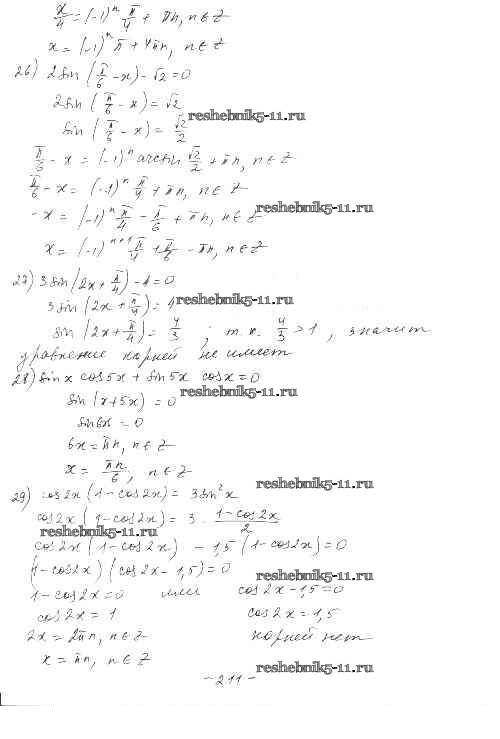 x/4 = (-1)^n π/4 + πn, n ∈ Z
x = (-1)^n π + 4πn, n ∈ Z
26) 2sin(π/6 - x) - √2 = 0
2sin(π/6 - x) = √2
reshebnik5-11.ru
sin(π/6 - x) = √2/2
π/6 - x = (-1)^n arcsin √2/2 + πn, n ∈ Z
π/6 - x = (-1)^n π/4 + πn, n ∈ Z
reshebnik5-11.ru
-x = (-1)^n π/4 - π/6 + πn, n ∈ Z
x = (-1)^{n+1} π/4 + π/6 - πn, n ∈ Z
27) 3sin(2x + π/4) - 4 = 0
3sin(2x + π/4) = 4
reshebnik5-11.ru
sin(2x + π/4) = 4/3 ; т.к. 4/3 > 1, значит
уравнение корней не имеет
28) sin x cos 5x + sin 5x cos x = 0
reshebnik5-11.ru
sin(x + 5x) = 0
sin 6x = 0
6x = πn, n ∈ Z
x = πn/6, n ∈ Z
reshebnik5-11.ru
29) cos 2x (1 - cos 2x) = 3 sin² x
cos 2x (1 - cos 2x) = 3 · (1 - cos 2x)/2
reshebnik5-11.ru
cos 2x (1 - cos 2x) - 1,5 (1 - cos 2x) = 0
(1 - cos 2x)(cos 2x - 1,5) = 0
reshebnik5-11.ru
1 - cos 2x = 0 или cos 2x - 1,5 = 0
cos 2x = 1 cos 2x = 1,5
2x = 2πn, n ∈ Z корней нет
x = πn, n ∈ Z
reshebnik5-11.ru
- 211 -